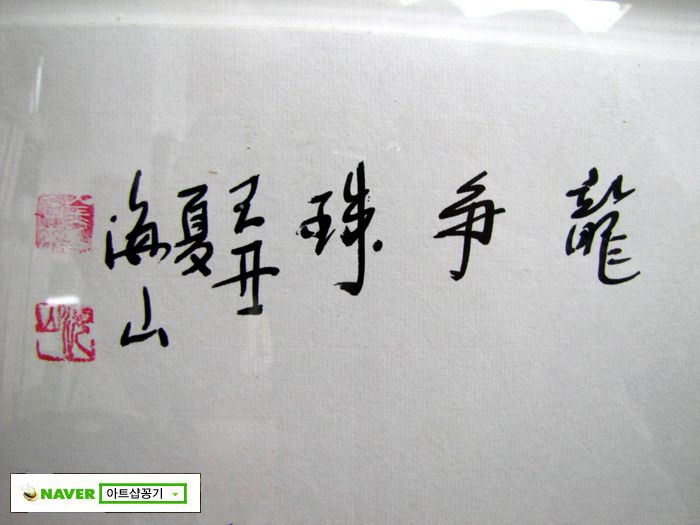 龍爭珠
丑
夏
海山
NAVER 아트샵꽁기